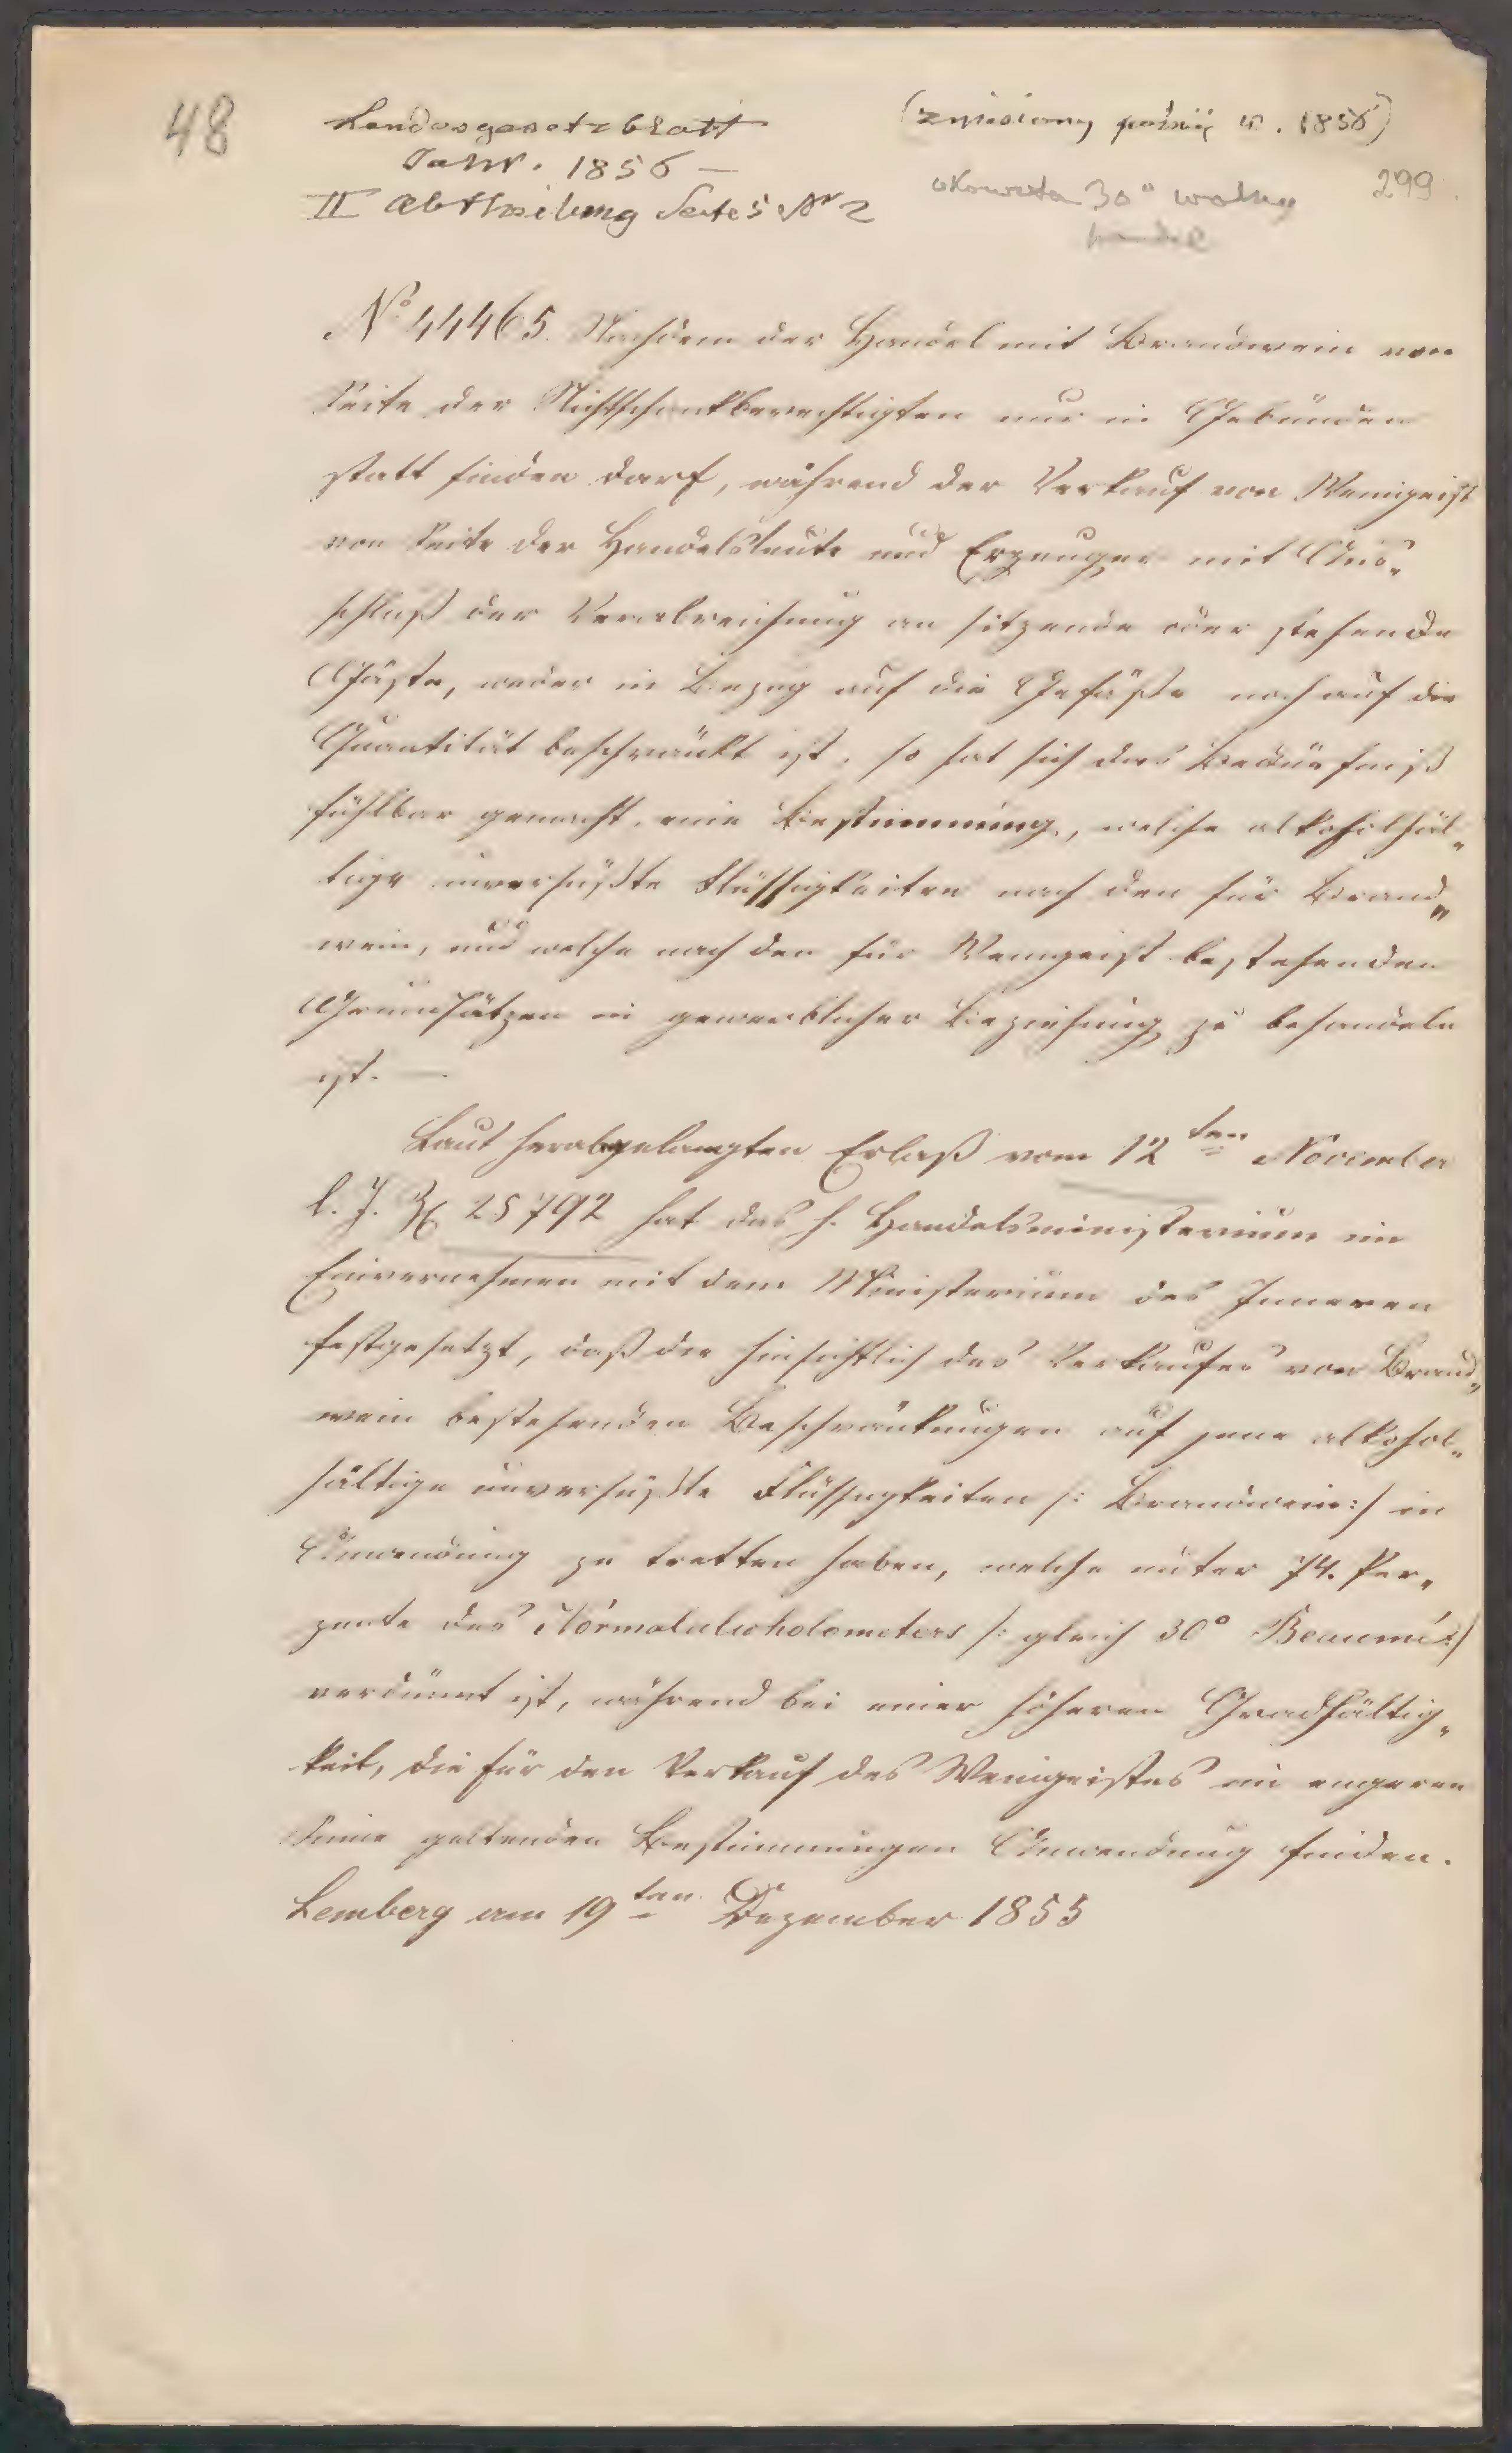 48
Landesgesetzblatt
Jahr. 1856 —
II Abtheilung Seite 5 Nr 2
(zmieniony później w. 1856)
okowita 30° wolny
handel
299
No 44465. Nachdem der Handel mit Brandwein von
Seite der Nichtschankberechtigten nur in Gebünden
statt finden darf, während der Verkauf von Weingeist
von Seite der Handelsleute und Erzeuger mit Aus„
schluß der Verabreichung an sitzende oder stehende
Gäste, weder in Bezug auf die Gefäße noch auf die
Quantität beschränkt ist, so hat sich das Bedürfniß
fühlbar gemacht, eine Bestimmung, welche alkoholhäl„
tige unversüßte Flüssigkeiten nach den für Brand„
wein, und welche nach den für Weingeist bestehenden
Grundsätzen in gewerblicher Beziehung zu behandeln
ist. —
Laut herabgelangten Erlaß vom 12ten November
l. J. Z 25792 hat das h. Handelsministerium im
Einvernehmen mit dem Ministerium des Inneren
festgesetzt, daß die hinsichtlich des Verkaufes von Brand„
wein bestehenden Beschränkungen auf jene alkohol„
hältige unversüßte Flüssigkeiten /: Brandwein :/ in
Anwendung zu tretten haben, welche unter 74. Per„
zente des Normalalcholometers /: gleich 30° Beaumé :/
verdünnt ist, während bei einer höheren Gradhältig„
keit, die für den Verkauf des Weingeistes im engeren
Sinne geltenden Bestimmungen Anwendung finden.
Lemberg am 19ten Dezember 1855